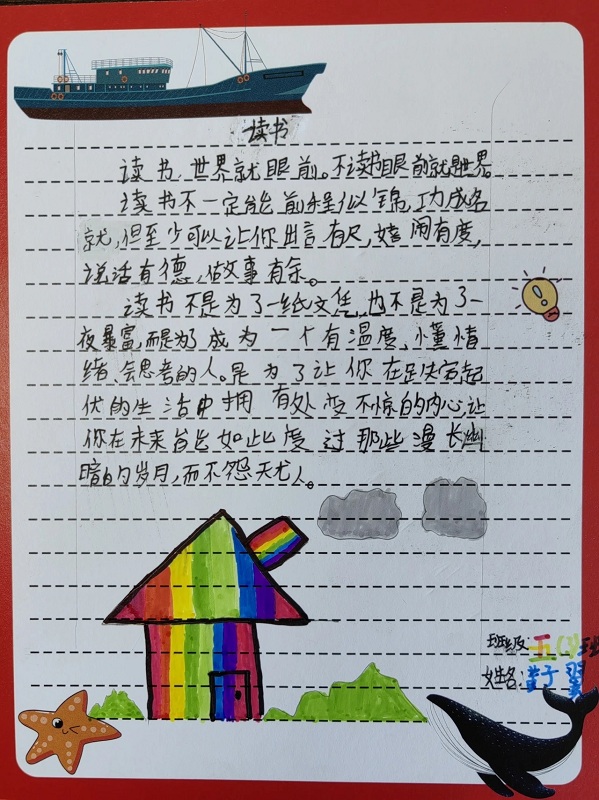 读书
读书,世界就眼前。不读书眼前就是世界。
读书不一定能前程似锦,功成名
就,但至少可以让你出言有尺,嬉闹有度,
说话有德,做事有余。
读书不是为了一纸文凭,也不是为了一
夜暴富,而是为了成为一个有温度、懂情
绪、会思考的人。是为了让你在跌宕起
伏的生活中拥有处变不惊的内心让
你在未来能如此度过那些漫长幽
暗的岁月,而不怨天尤人。
班级:五(1)班
姓名: